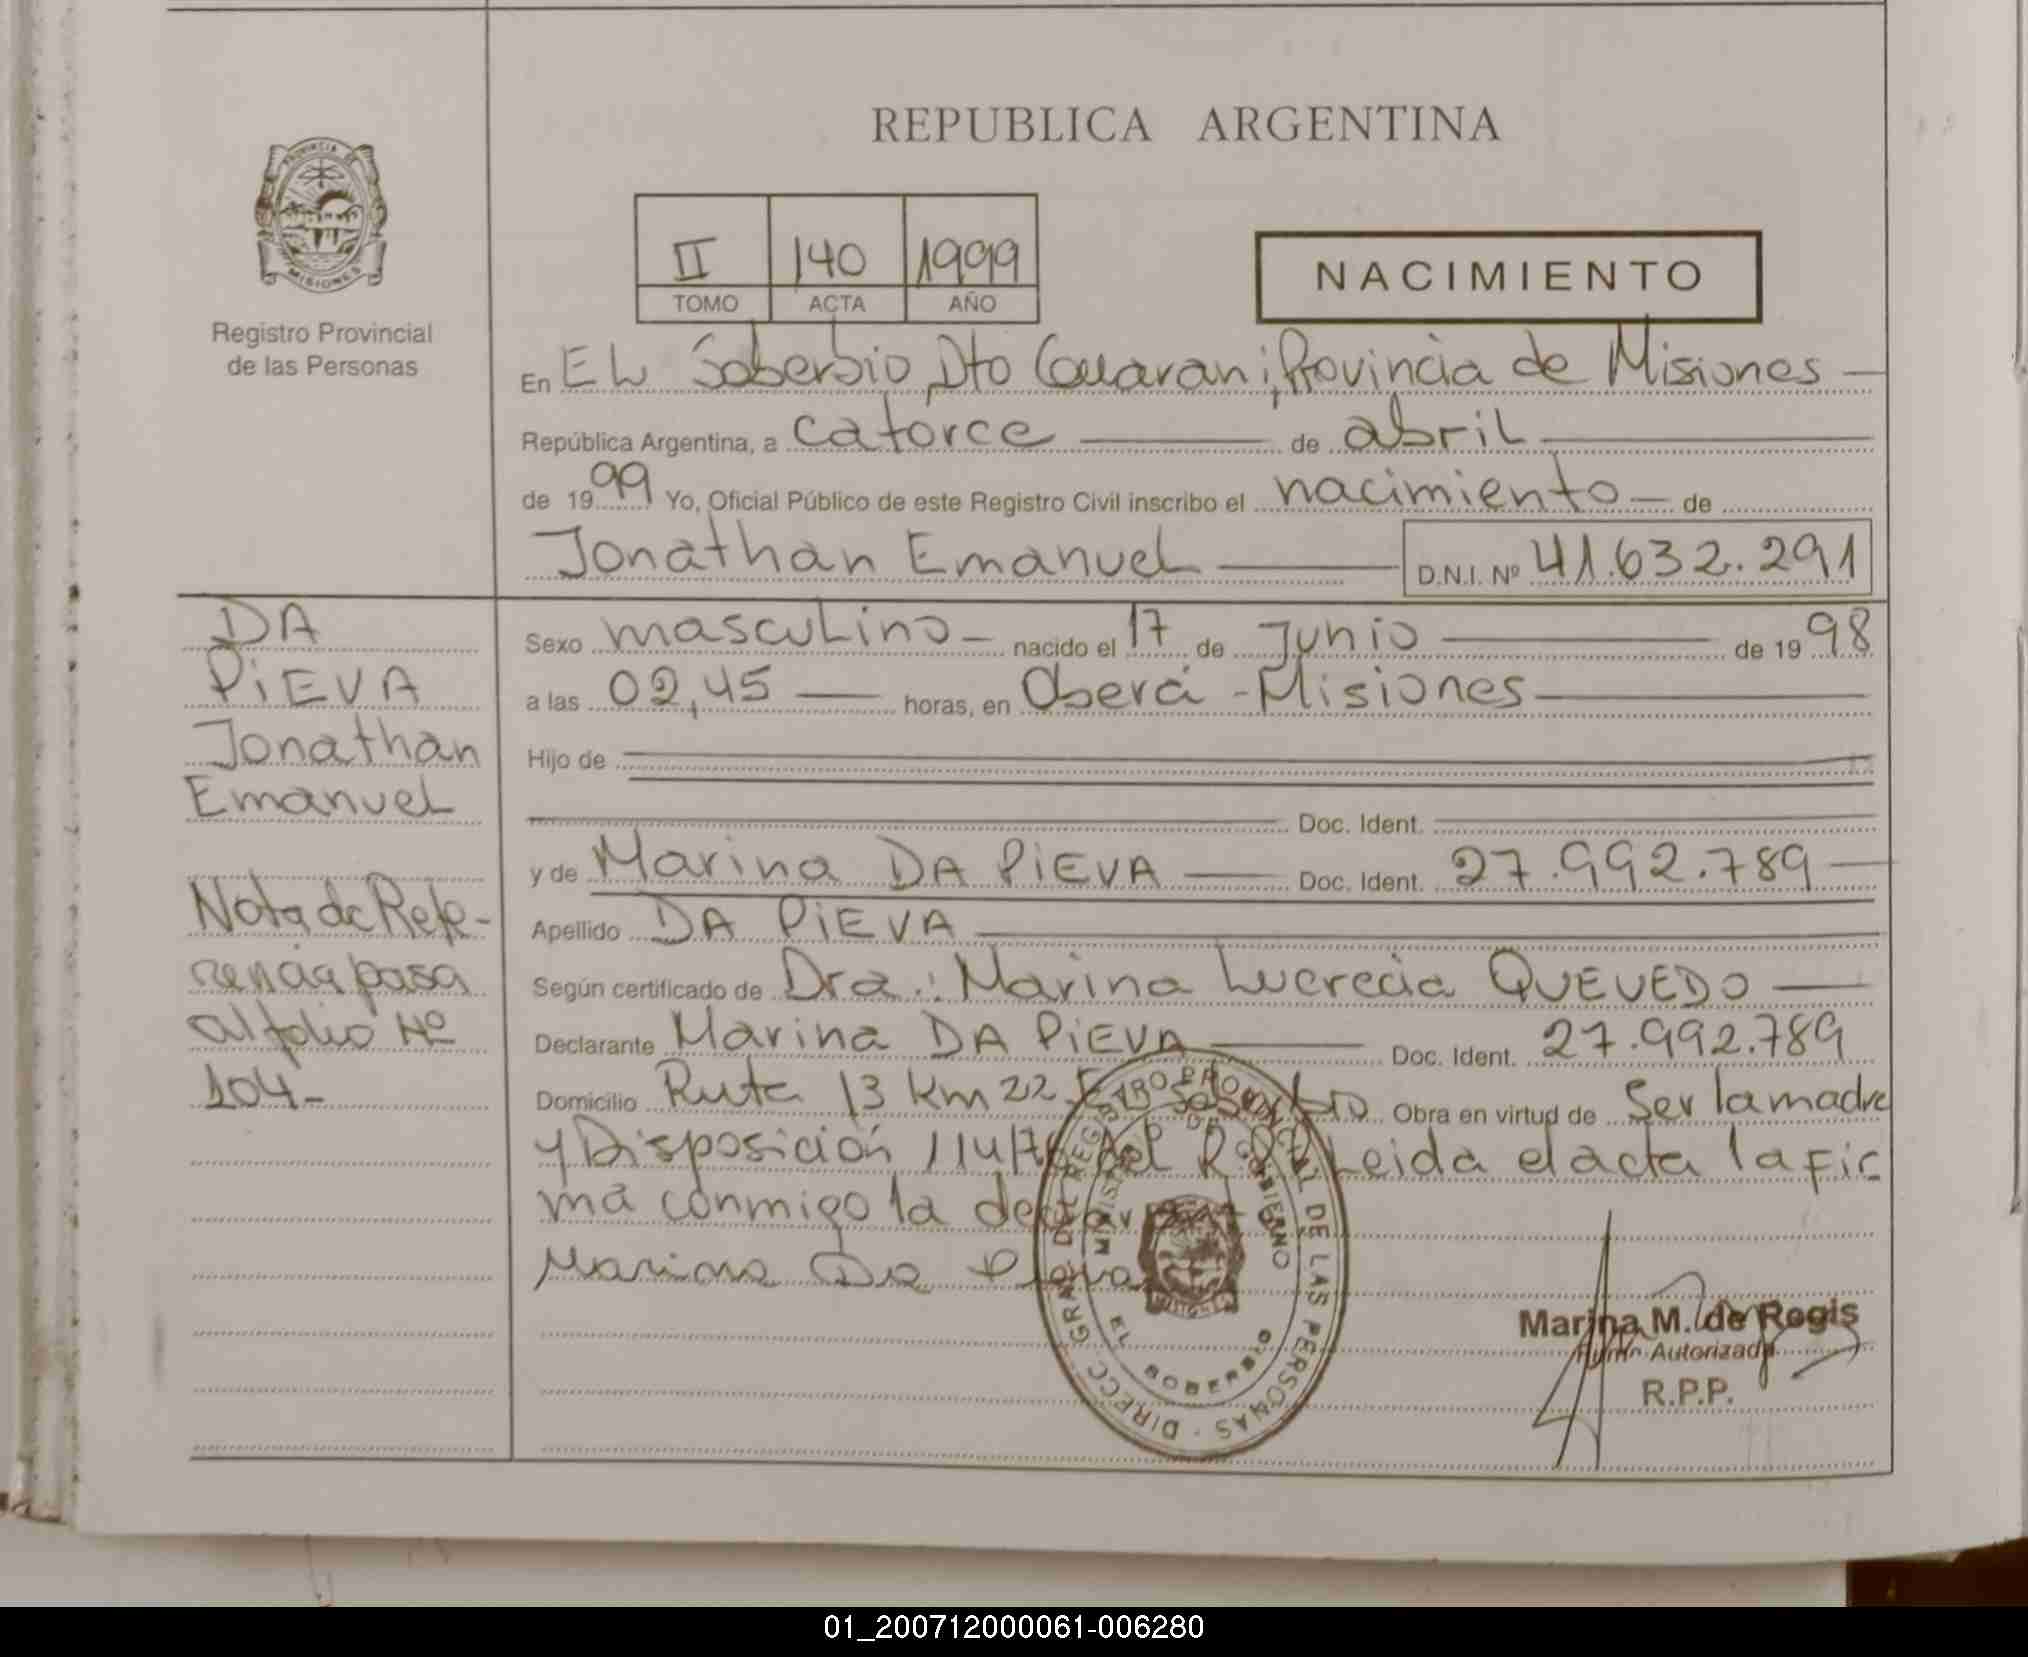 REPUBLICA ARGENTINA
PROVINCIA DE
MISIONES
Registro Provincial
de las Personas
II 140 1999
TOMO ACTA AÑO
NACIMIENTO
En EL Soberbio, Dto Guarani, Provincia de Misiones
República Argentina, a catorce de abril
de 1999 Yo, Oficial Público de este Registro Civil inscribo el nacimiento de
Jonathan Emanuel D.N.I. Nº 41.632.291
DA
PiEVA
Jonathan
Emanuel
Nota de Refe-
rencia pasa
al folio Nº
104-
Sexo masculino nacido el 17 de Junio de 1998
a las 02,45 horas, en Oberá - Misiones
Hijo de
Doc. Ident.
y de Marina DA PiEVA Doc. Ident. 27.992.789
Apellido DA PiEVA
Según certificado de Dra.: Marina Lucrecia QUEVEDO
Declarante Marina DA PiEVA Doc. Ident. 27.992.789
Domicilio Ruta 13 Km 22 Soberbio Obra en virtud de Ser la madre
y Disposición 114/76 del R.P.P. Leida el acta la fir
ma conmigo la declarante
Marina Da Pieva
DIRECC. GRAL. DEL REGISTRO PROVINCIAL DE LAS PERSONAS
MINISTERIO DE GOBIERNO
MISIONES
EL SOBERBIO
Marina M. de Regis
Autorizada
R.P.P.
01_200712000061-006280